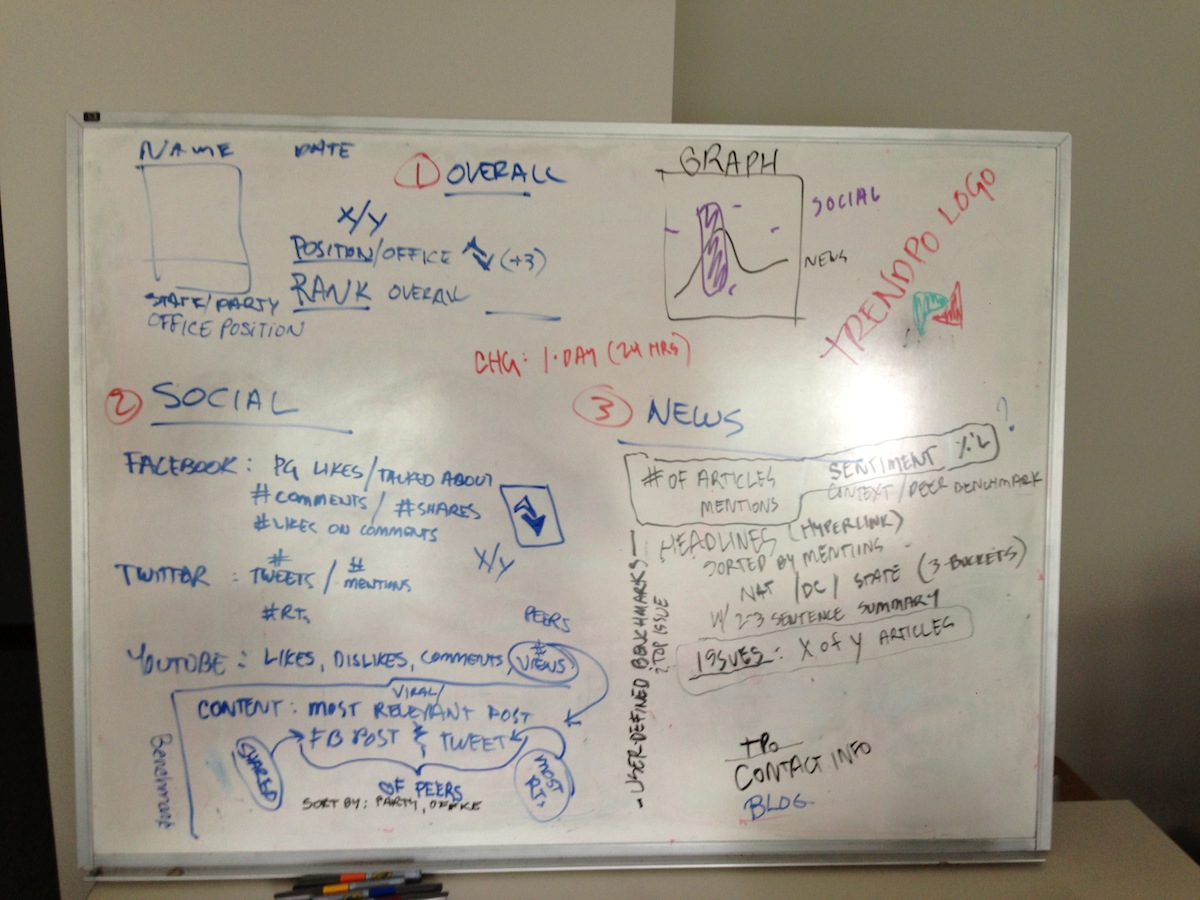 NAME DATE
① OVERALL
X/Y
POSITION/OFFICE (+3)
RANK OVERALL
STATE/PARTY
OFFICE POSITION
GRAPH
SOCIAL
NEWS
TRENDPO LOGO
CHG: 1·DAY (24 HRS)
② SOCIAL
FACEBOOK: PG LIKES/TALKED ABOUT
#COMMENTS / #SHARES
#LIKES ON COMMENTS
X/Y
TWITTER: # TWEETS / # MENTIONS
#RTs
PEERS
YOUTUBE: LIKES, DISLIKES, COMMENTS, # VIEWS
VIRAL/
CONTENT: MOST RELEVANT POST
SHARED
FB POST & TWEET
MOST RTs
OF PEERS
SORT BY: PARTY, OFFICE
Benchmark
③ NEWS
?
# OF ARTICLES
MENTIONS
SENTIMENT
CONTEXT/PEER BENCHMARK
HEADLINES (HYPERLINK)
SORTED BY MENTIINS
NAT /DC/ STATE (3-BUCKETS)
W/ 2-3 SENTENCE SUMMARY
ISSUES: X of Y ARTICLES
- USER-DEFINED BENCHMARKS -
? TOP ISSUE
TPO
CONTACT INFO
BLOG